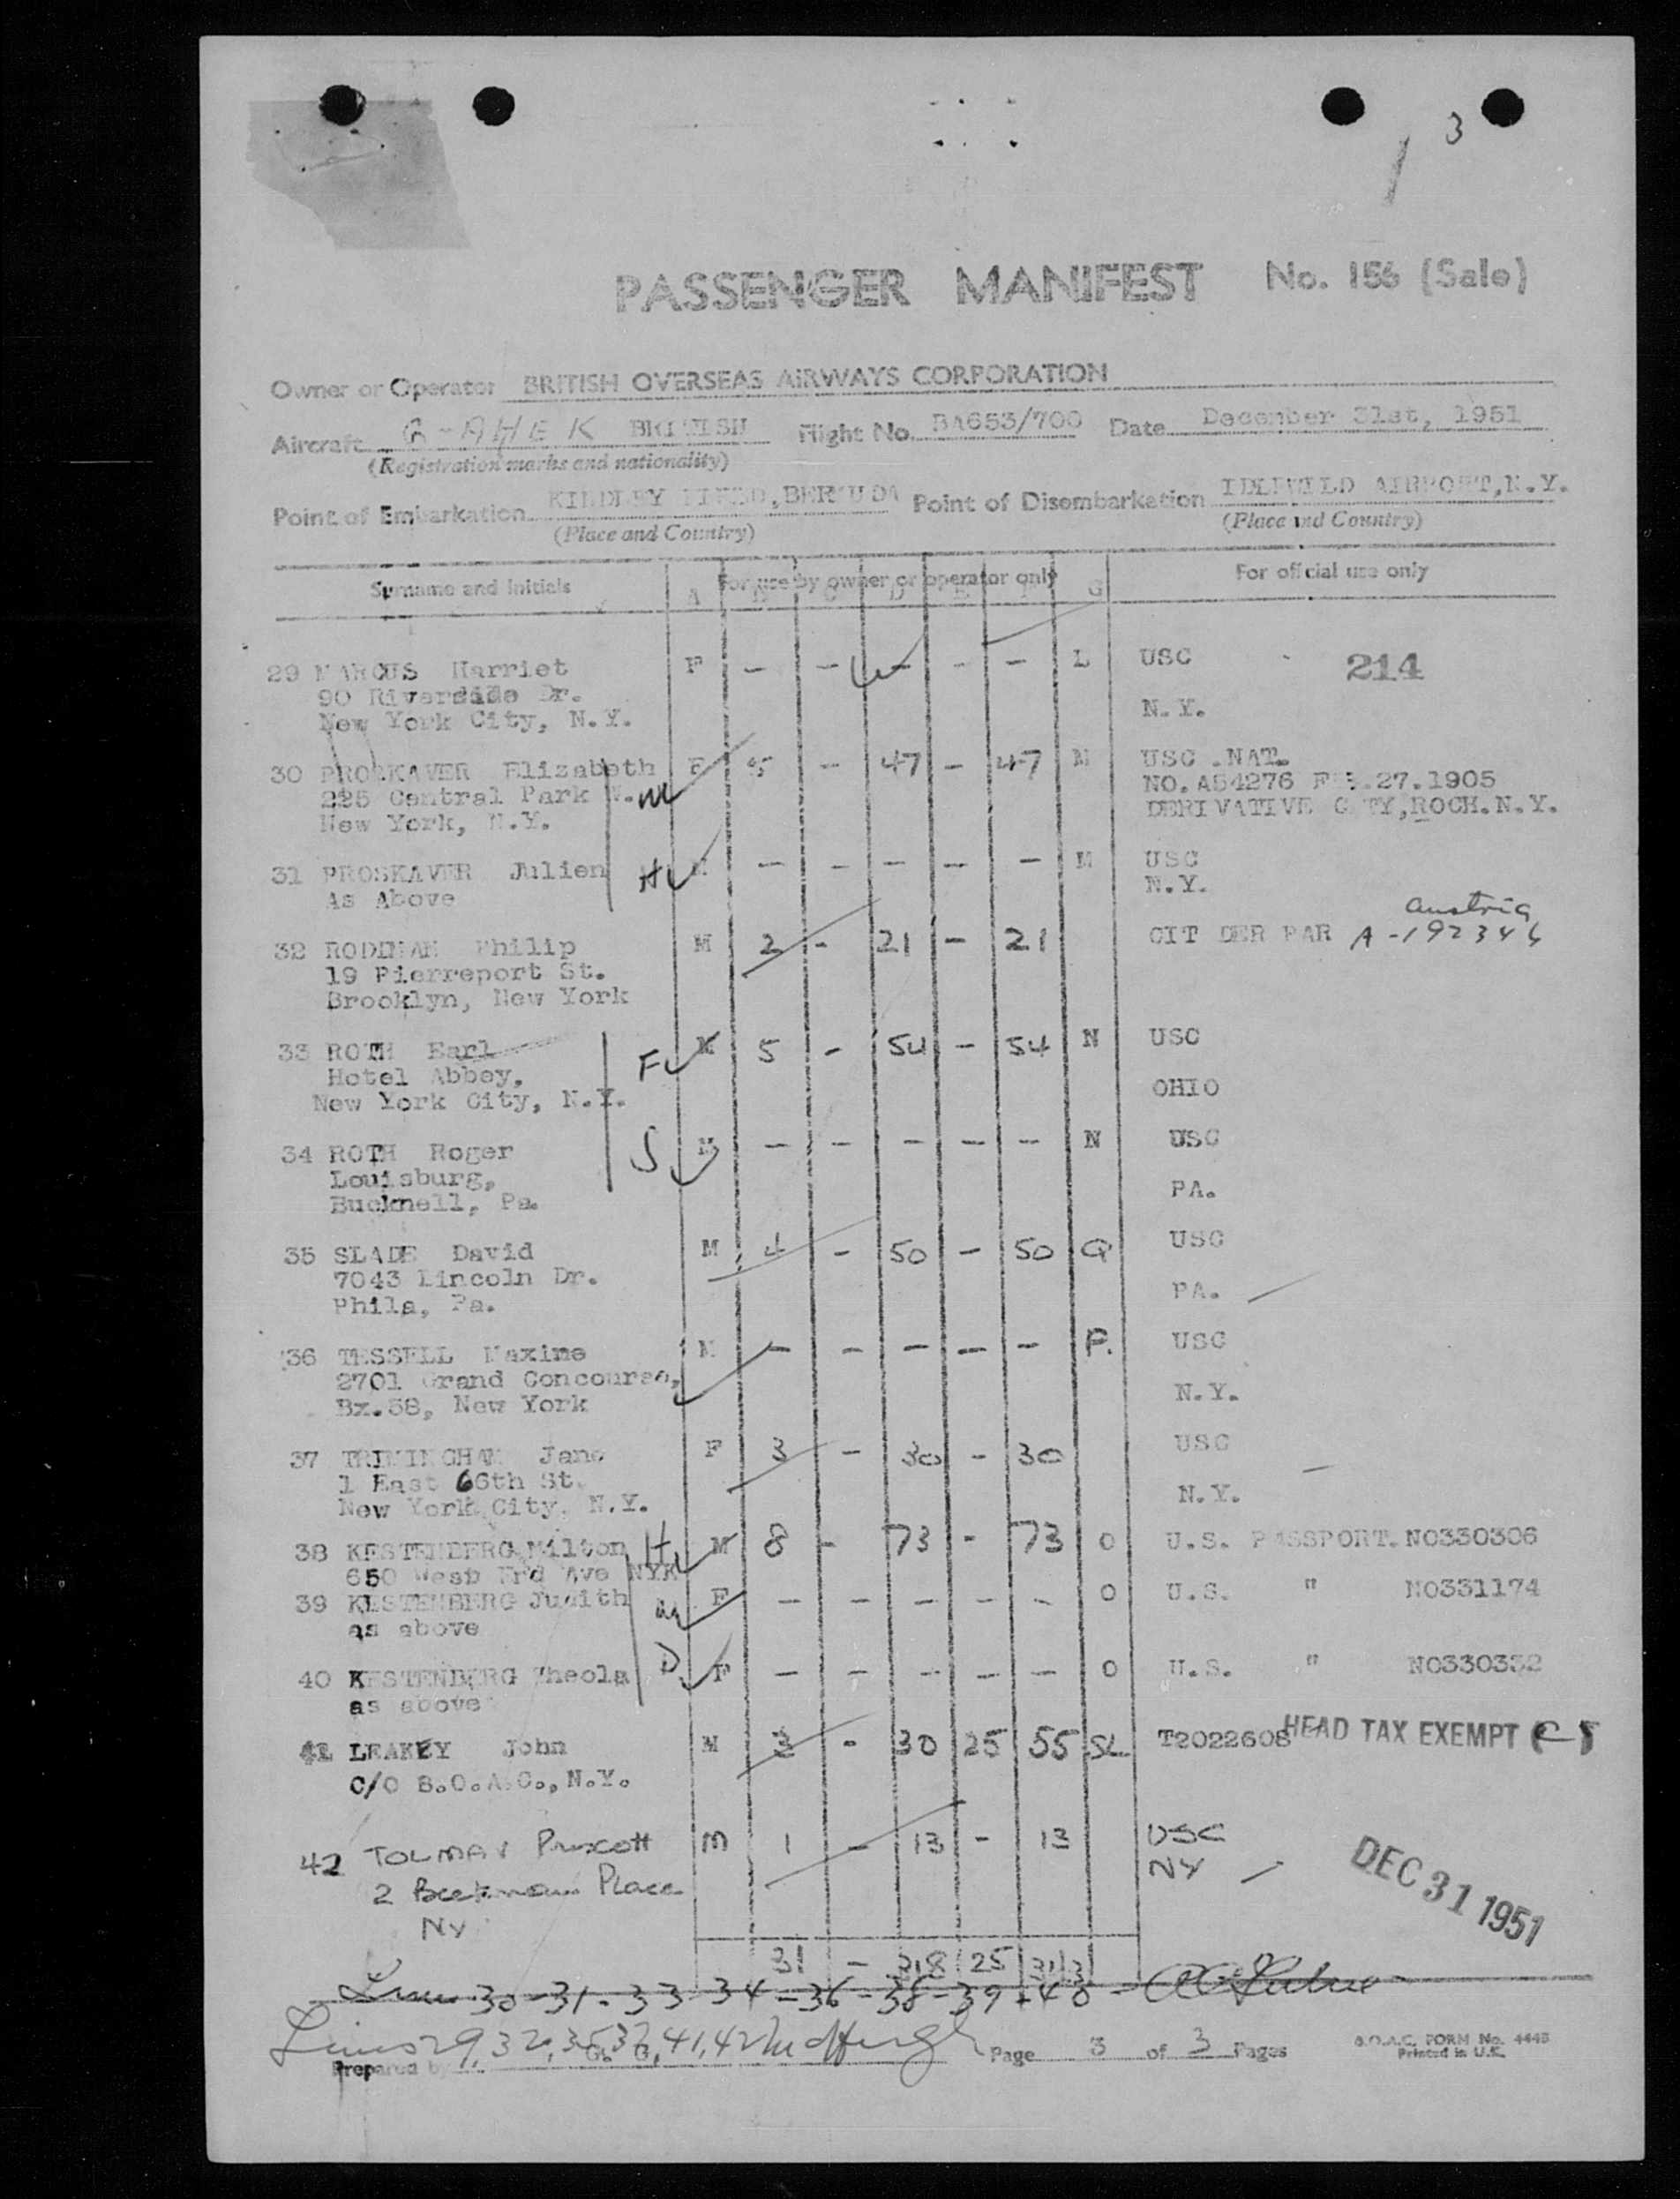 3
PASSENGER MANIFEST No. 156 (Sale)
Owner or Operator BRITISH OVERSEAS AIRWAYS CORPORATION
Aircraft G-AHEK BRITISH Flight No. BA653/700 Date December 31st, 1951
(Registration marks and nationality)
Point of Embarkation KINDLEY FIELD, BERMUDA Point of Disembarkation IDLEWILD AIRPORT, N.Y.
(Place and Country) (Place and Country)
Surname and Initials For use by owner or operator only For official use only
A B C D E F G
29 MARCUS Harriet F - - - - - L USC 214
90 Riverside Dr.
New York City, N.Y. N.Y.
30 PROSKAVER Elizabeth F 5 - 47 - 47 M USC .NAT.
225 Central Park W. NO.A54276 FEB.27.1905
New York, N.Y. DERIVATIVE CTY,ROCH.N.Y.
31 PROSKAVER Julien H M - - - - - M USC
As Above N.Y.
Austria
32 RODEMAN Philip M 2 - 21 - 21 CIT DER PAR A-192346
19 Pierreport St.
Brooklyn, New York
33 ROTH Earl F M 5 - 54 - 54 N USC
Hotel Abbey, OHIO
New York City, N.Y.
34 ROTH Roger S M - - - - - N USC
Louisburg,
Bucknell, Pa. PA.
35 SLADE David M 4 - 50 - 50 Q USC
7043 Lincoln Dr.
Phila, Pa. PA.
36 TESSELL Maxine M - - - - - P. USC
2701 Grand Concourse,
Bx.58, New York N.Y.
37 TRIMINGHAM Jane F 3 - 30 - 30 USC
1 East 66th St.
New York City, N.Y. N.Y.
38 KESTENBERG Milton H M 8 - 73 - 73 O U.S. PASSPORT.NO330306
650 West End Ave NYK
39 KESTENBERG Judith F - - - - - O U.S. " NO331174
as above
40 KESTENBERG Theola D F - - - - - O U.S. " NO330332
as above
41 LEAKEY John M 3 - 30 25 55 SL T2022608 HEAD TAX EXEMPT
C/O B.O.A.C., N.Y.
42 TOLMAN Prescott M 1 - 13 - 13 USC
2 Beekman Place NY
NY
DEC 31 1951
31 - 318 25 313
Lines 30-31-33 34-36-38-39+40
Lines 29, 32, 35, 37, 41, 42
Prepared by Page 3 of 3 Pages B.O.A.C. FORM No. 4445
Printed in U.K.